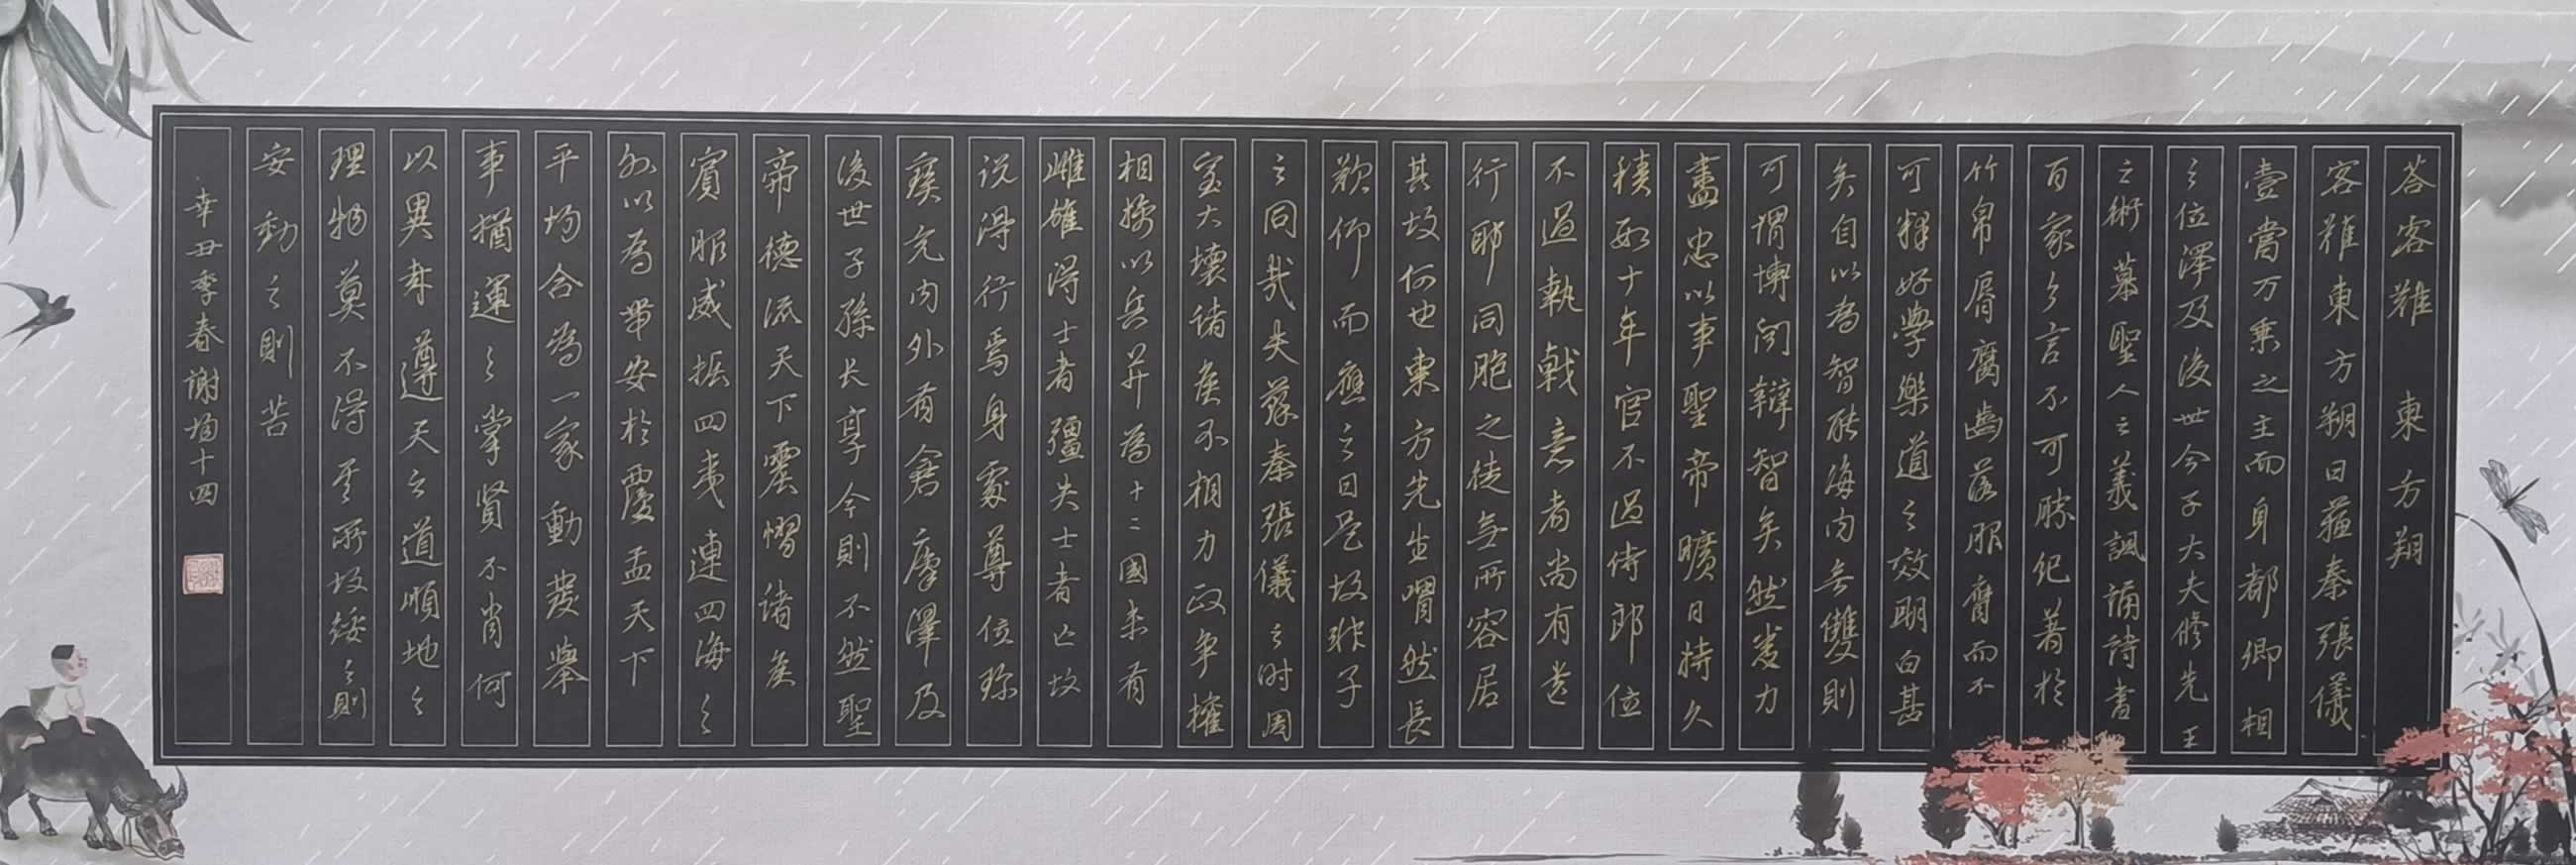 荅客難　東方朔
客難東方朔曰蘇秦張儀
壹當万乘之主而身都卿相
之位澤及後世今子大夫修先王
之術慕聖人之義諷誦詩書
百家之言不可勝紀著於
竹帛脣腐齒落服膺而不
可釋好學樂道之效明白甚
矣自以為智能海内無雙則
可謂博聞辯智矣然悉力
盡忠以事聖帝曠日持久
積數十年官不過侍郎位
不過執戟意者尚有遺
行耶同胞之徒無所容居
其故何也東方先生喟然長
歎仰而應之曰是故非子
之同哉夫蘇秦張儀之时周
室大壞諸侯不相力政争權
相擒以兵并為十二國未有
雌雄得士者彊失士者亡故
说得行焉身處尊位珍
寶充内外有倉廩澤及
後世子孫长享今則不然聖
帝德流天下震慴諸侯
賓服威振四夷連四海之
外以為帶安於覆盂天下
平均合為一家動發舉
事猶運之掌賢不肖何
以異哉遵天之道順地之
理物莫不得其所故綏之則
安動之則苦
辛丑季春謝均十四